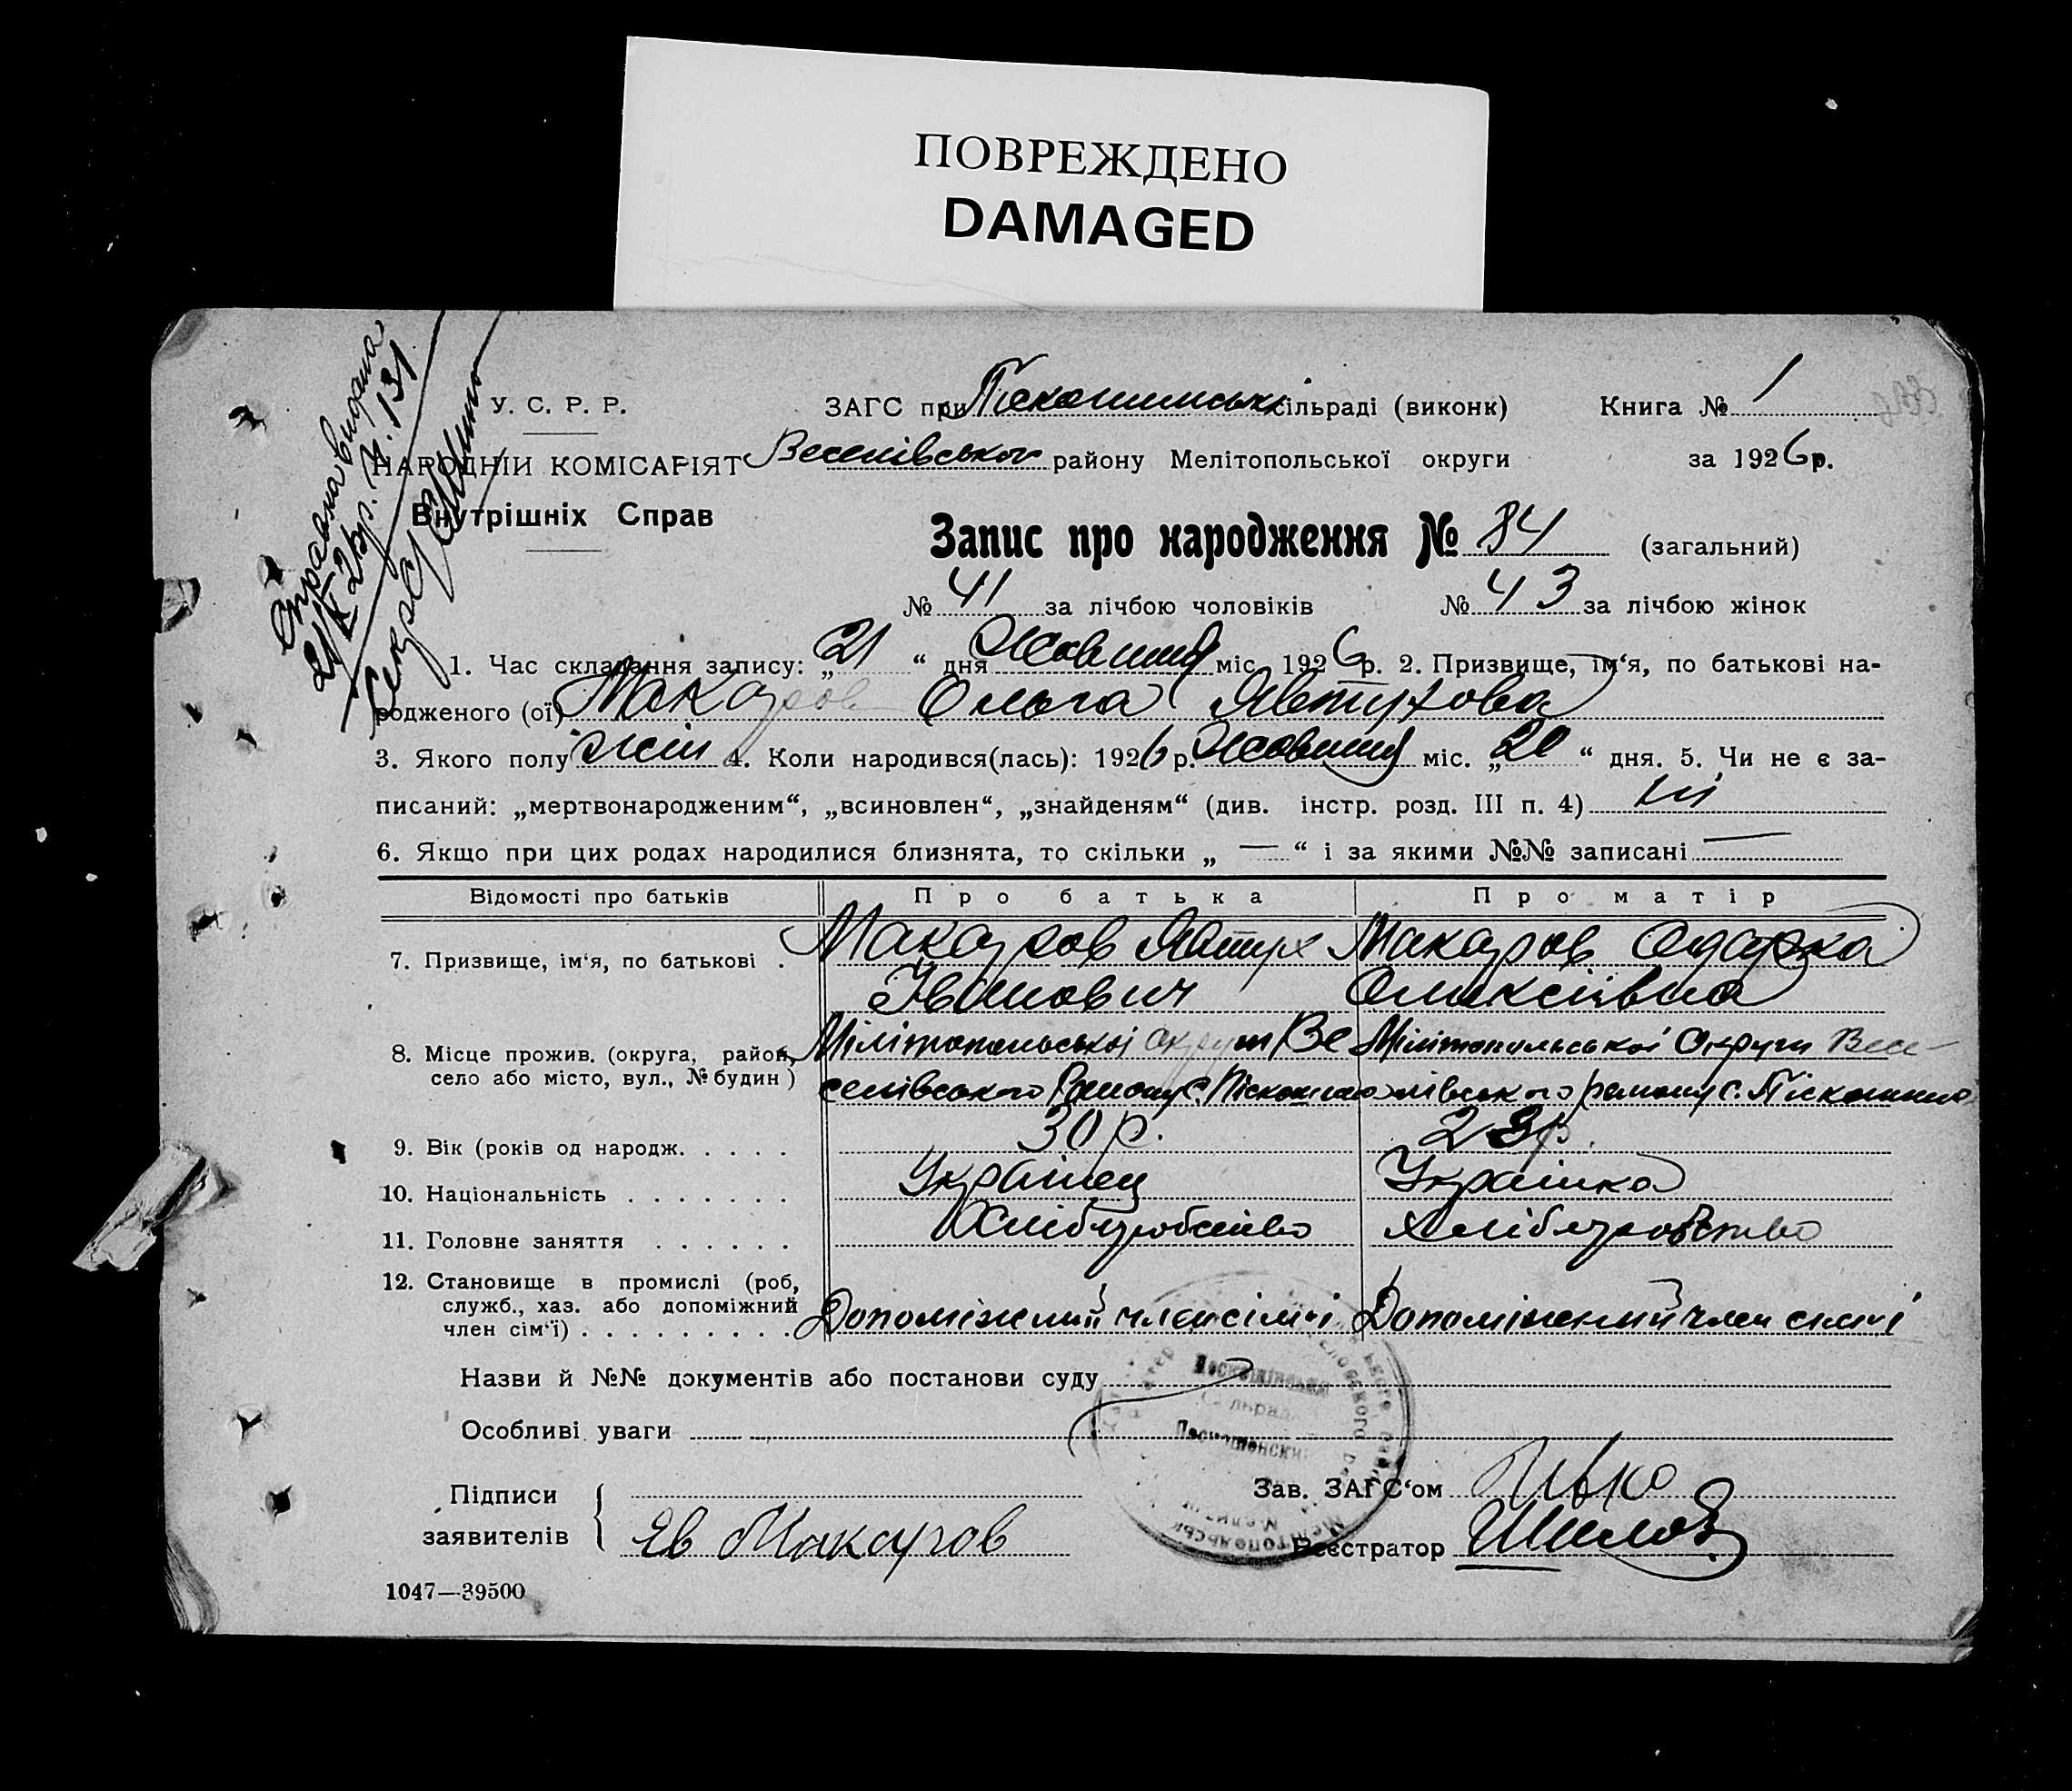 ПОВРЕЖДЕНО
DAMAGED
У. С. Р. Р.
ЗАГС при Піскошинські сільраді (виконк)
Книга № 1
НАРОДНІЙ КОМІСАРІЯТ
Веселівського району Мелітопольської округи
за 1926 р.
Внутрішніх Справ
Запис про народження № 84 (загальний)
№ 41 за лічбою чоловіків № 43 за лічбою жінок
1. Час складання запису: „21“ дня Жовтня міс. 1926 р. 2. Призвище, ім‘я, по батькові на-
родженого (ої) Макаров Ольга Явтухова
3. Якого полу жін 4. Коли народився(лась): 1926 р. Жовтня міс. „20“ дня. 5. Чи не є за-
писаний: „мертвонародженим“, „всиновлен“, „знайденям“ (див. інстр. розд. III п. 4) ні
6. Якщо при цих родах народилися близнята, то скільки „ — “ і за якими №№ записані —
Відомості про батьків Про батька Про матір
7. Призвище, ім‘я, по батькові . Макаров Явтух Макаров Одарка
Іванович Олексіївна
8. Місце прожив. (округа, район, Мілітопольської округи Ве Мілітопольської Округи Весе-
село або місто, вул., № будин) селівського Району с. Піскошино лівського району с. Піскошино
9. Вік (років од народж. . . . . 30 р. 23 р.
10. Національність . . . . . . . Українец Українка
11. Головне заняття . . . . . . Хліборобство хліборобство
12. Становище в промислі (роб,
служб., хаз. або допоміжний
член сім‘ї) . . . . . . . . . Допоміжний член сімї Допоміжний член сімї
Назви й №№ документів або постанови суду
Особливі уваги
Підписи
заявителів
Яв Макаров
Зав. ЗАГС‘ом
Реєстратор
1047—39500
Справка видана